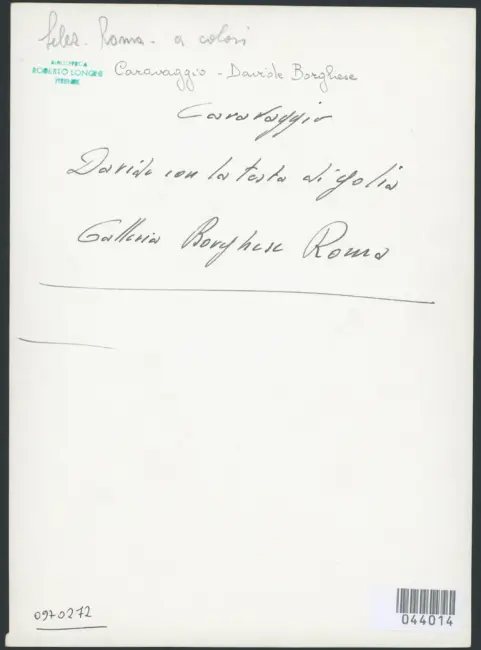 selez. Roma - a colori
BIBLIOTECA
ROBERTO LONGHI
FIRENZE
Caravaggio - Davide Borghese
Caravaggio
Davide con la testa di Golia
Galleria Borghese Roma
0970272
044014